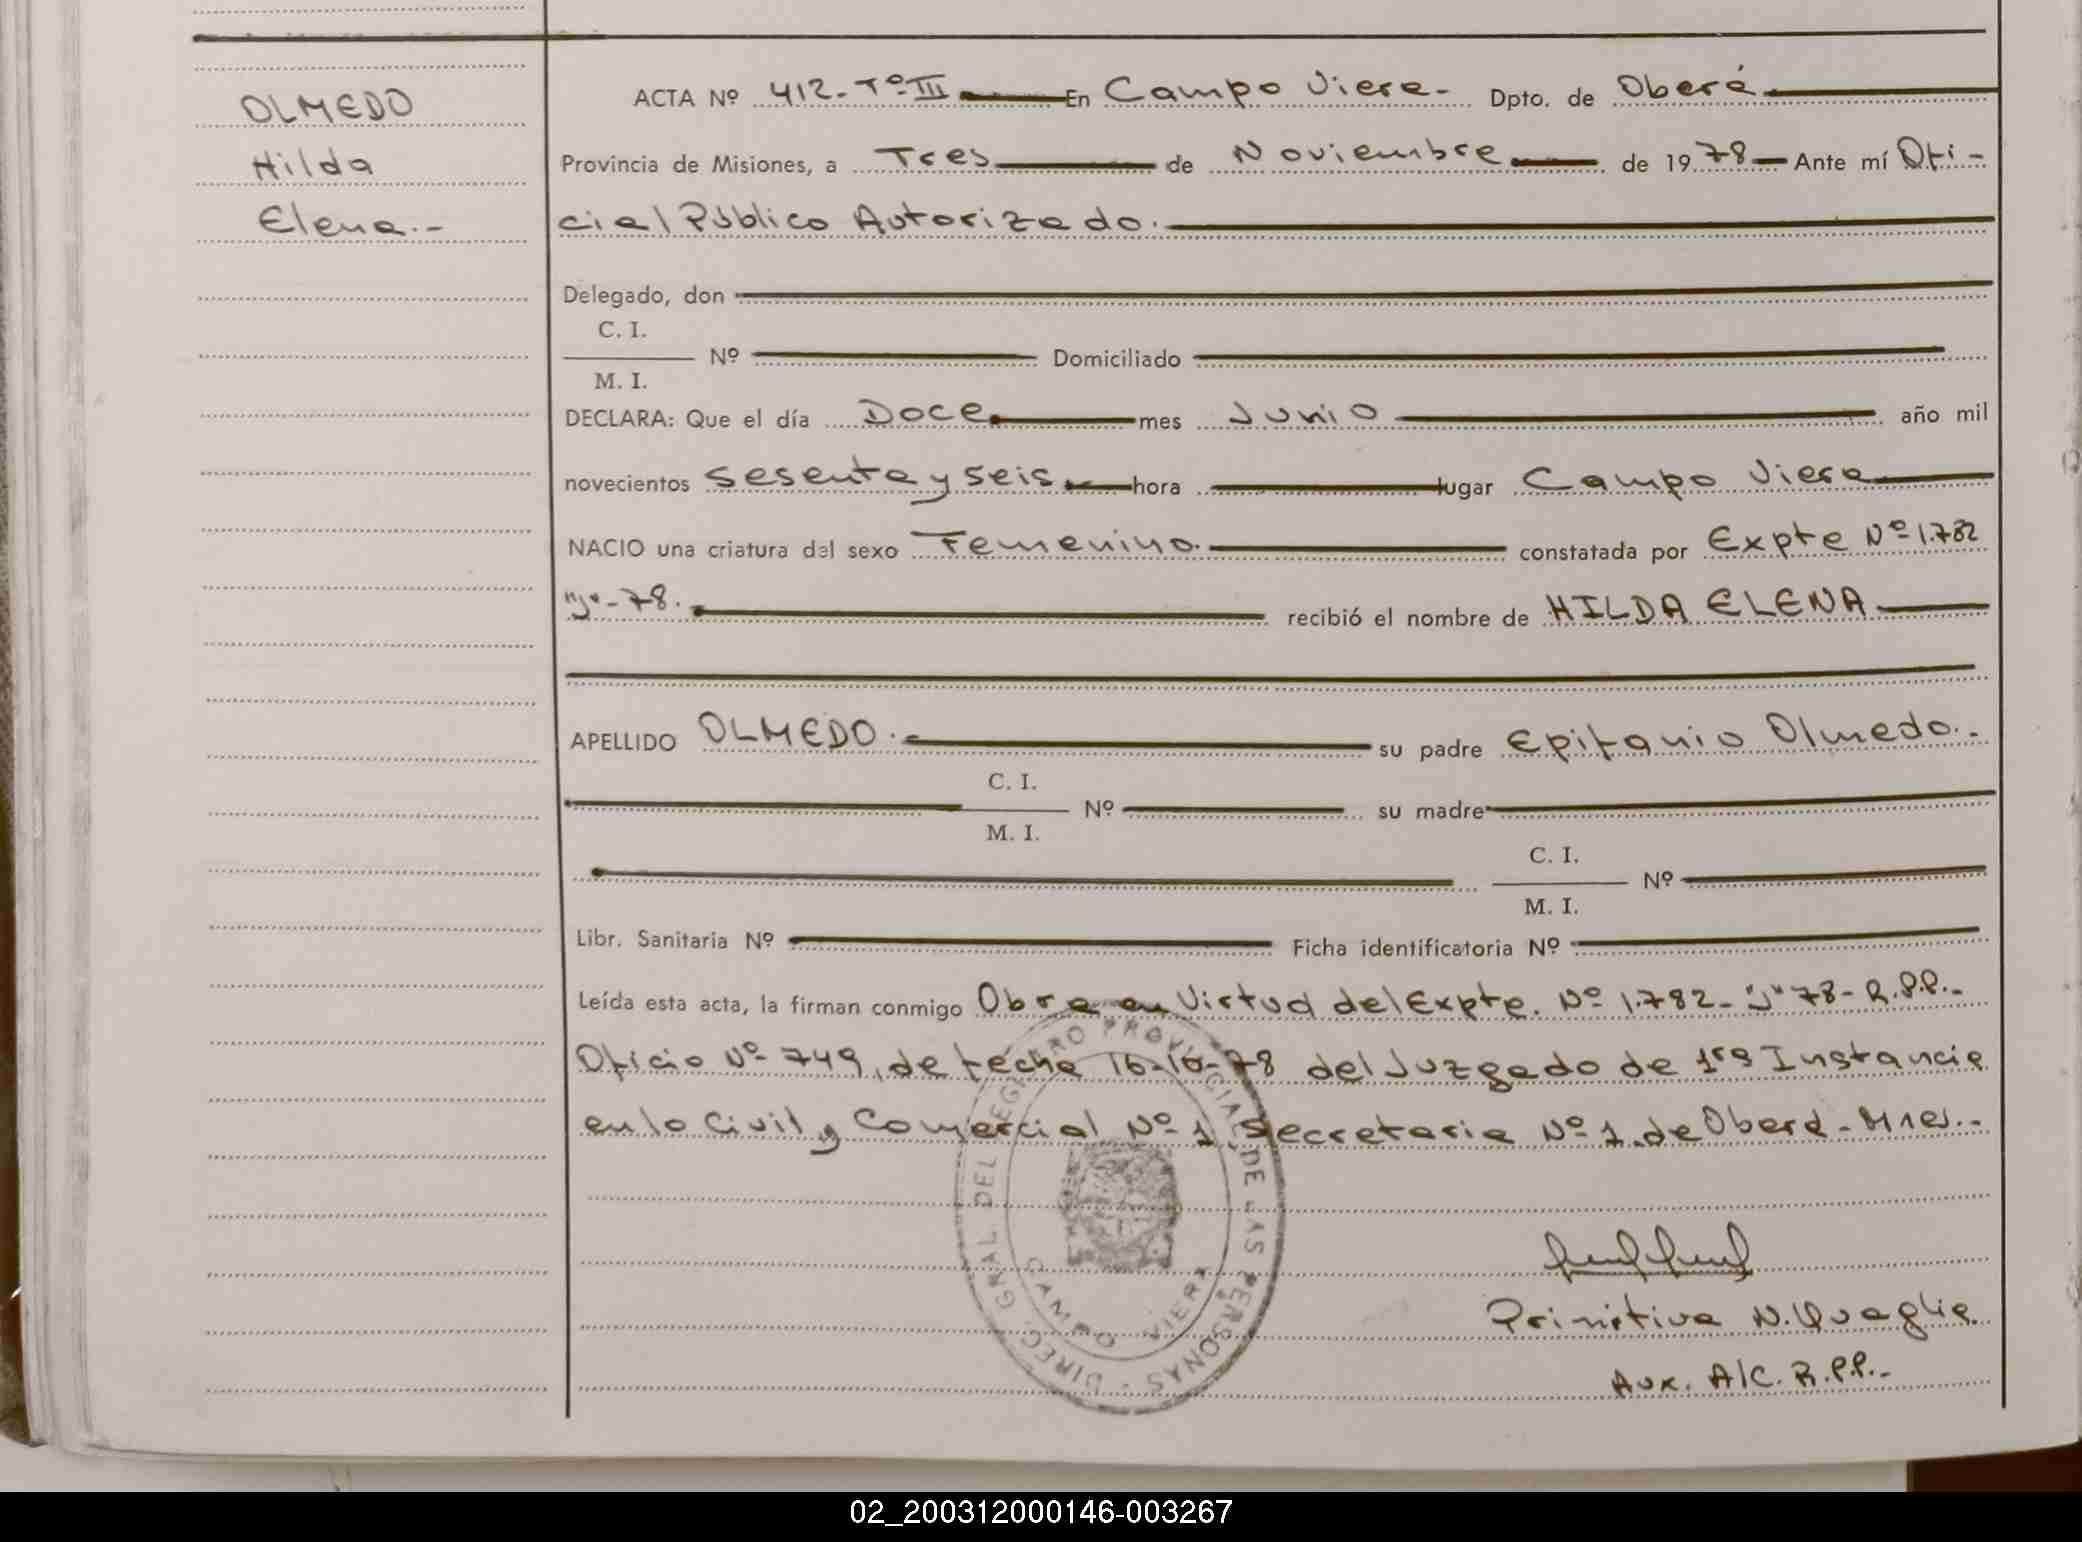 OLMEDO
Hilda
Elena.-
ACTA Nº 412-Tº III En Campo Viera- Dpto. de Oberá
Provincia de Misiones, a Tres de Noviembre de 1978 Ante mí Ofi-
cial Público Autorizado.
Delegado, don
C. I.
Nº Domiciliado
M. I.
DECLARA: Que el día Doce mes Junio año mil
novecientos sesenta y seis hora lugar Campo Viera
NACIO una criatura del sexo Femenino. constatada por Expte Nº 1.782
"J"-78. recibió el nombre de HILDA ELENA
APELLIDO OLMEDO.- su padre Epifanio Olmedo.-
C. I.
Nº su madre
M. I.
C. I.
Nº
M. I.
Libr. Sanitaria Nº Ficha identificatoria Nº
Leída esta acta, la firman conmigo Obra en Virtud del Expte. Nº 1.782-"J" 78- R.P.P.-
Oficio Nº 749, de fecha 16-10-78 del Juzgado de 1ra Instancia
en lo Civil y Comercial Nº 1 Secretaria Nº 1 de Oberá - Mnes.-
DIREC. GRAL. DEL REGISTRO PROVINCIAL DE LAS PERSONAS -
CAMPO VIERA
Primitiva N. Quaglia
Aux. A/C. R.P.P.-
02_200312000146-003267